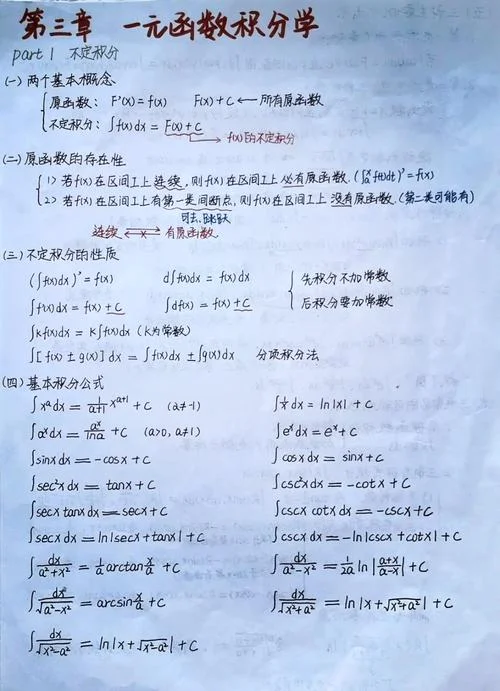 第三章 一元函数积分学
part 1 不定积分
(一) 两个基本概念
原函数: F'(x) = f(x) F(x)+C ← 所有原函数
不定积分: ∫f(x)dx = F(x)+C
→ f(x)的不定积分
(二) 原函数的存在性
1) 若f(x)在区间I上连续, 则f(x)在区间I上必有原函数. (∫ₐˣf(t)dt)' = f(x)
2) 若f(x)在区间I上有第一类间断点, 则f(x)在区间I上没有原函数. (第二类可能有)
可去、跳跃
连续 ⇄ 有原函数
(三) 不定积分的性质
(∫f(x)dx)' = f(x) d∫f(x)dx = f(x)dx 先积分不加常数
∫f'(x)dx = f(x)+C ∫df(x) = f(x)+C 后积分要加常数
∫kf(x)dx = k∫f(x)dx (k为常数)
∫[f(x) ± g(x)]dx = ∫f(x)dx ± ∫g(x)dx 分项积分法
(四) 基本积分公式
∫xᵃdx = 1/(a+1) xᵃ⁺¹ + C (a≠-1) ∫1/x dx = ln|x| + C
∫aˣdx = aˣ/lna + C (a>0, a≠1) ∫eˣdx = eˣ+C
∫sinxdx = -cosx + C ∫cosxdx = sinx+C
∫sec²xdx = tanx+C ∫csc²xdx = -cotx + C
∫secxtanxdx = secx+C ∫cscxcotxdx = -cscx+C
∫secxdx = ln|secx+tanx| + C ∫cscxdx = -ln|cscx+cotx| + C
∫dx/(a²+x²) = 1/a arctan x/a + C ∫dx/(a²-x²) = 1/2a ln|(a+x)/(a-x)| + C
∫dx/√(a²-x²) = arcsin x/a + C ∫dx/√(x²+a²) = ln|x+√(x²+a²)| + C
∫dx/√(x²-a²) = ln|x+√(x²-a²)| + C